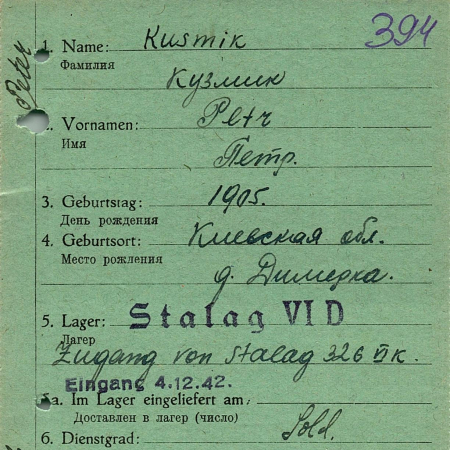 394
1. Name: Kusmik
Фамилия
Кузмик
Peter
2. Vornamen: Petr
Имя
Петр.
3. Geburtstag: 1905.
День рождения
4. Geburtsort: Киевская обл.
Место рождения
д. Димерка.
5. Lager: Stalag VI D
Лагер
Zugang von Stalag 326 VI K.
Eingang 4.12.42.
5a. Im Lager eingeliefert am:
Доставлен в лагер (число)
6. Dienstgrad: Sold.